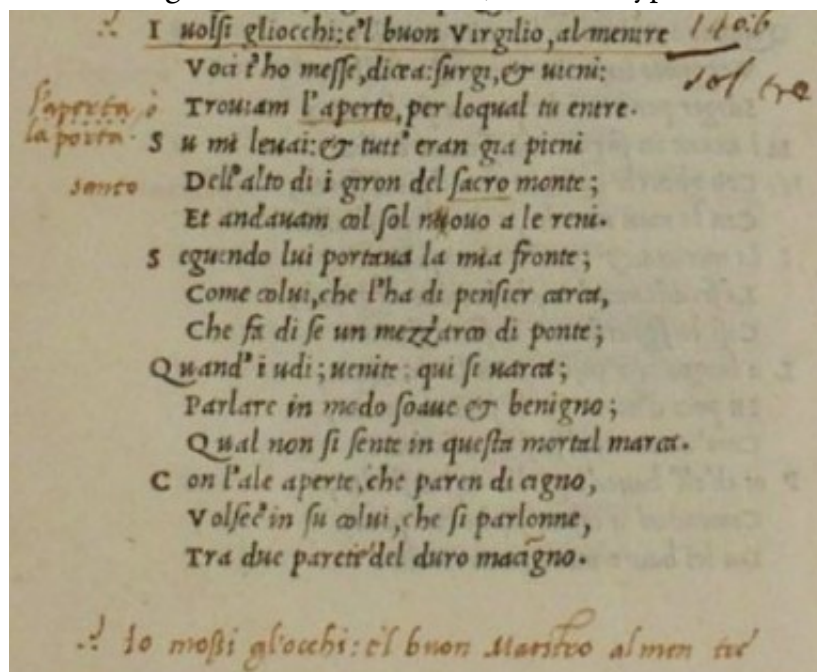 .·. I uolſi gliocchi: e'l buon Virgilio, al mentre
Voci t'ho meſſe, dicea: ſurgi, et uieni:
l'aperta, ò Trouiam l'aperto, per loqual tu entre.
la porta. S u mi leuai: et tutt' eran gia pieni
santo Dell'alto di i giron del ſacro monte;
Et andauam col ſol nuouo a le reni.
S eguendo lui portaua la mia fronte;
Come colui, che l'ha di penſier carca,
Che fa di ſe un mezz'arco di ponte;
Quand' i udi; uenite; qui ſi uarca;
Parlare in modo ſoaue et benigno;
Qual non ſi ſente in queſta mortal marca.
C on l'ale aperte, che paren di cigno,
Volſec' in ſu colui, che ſi parlonne,
Tra due pareti del duro macigno.
.·. Io moſſi gl'occhi: e'l buon Maeſtro al men tre